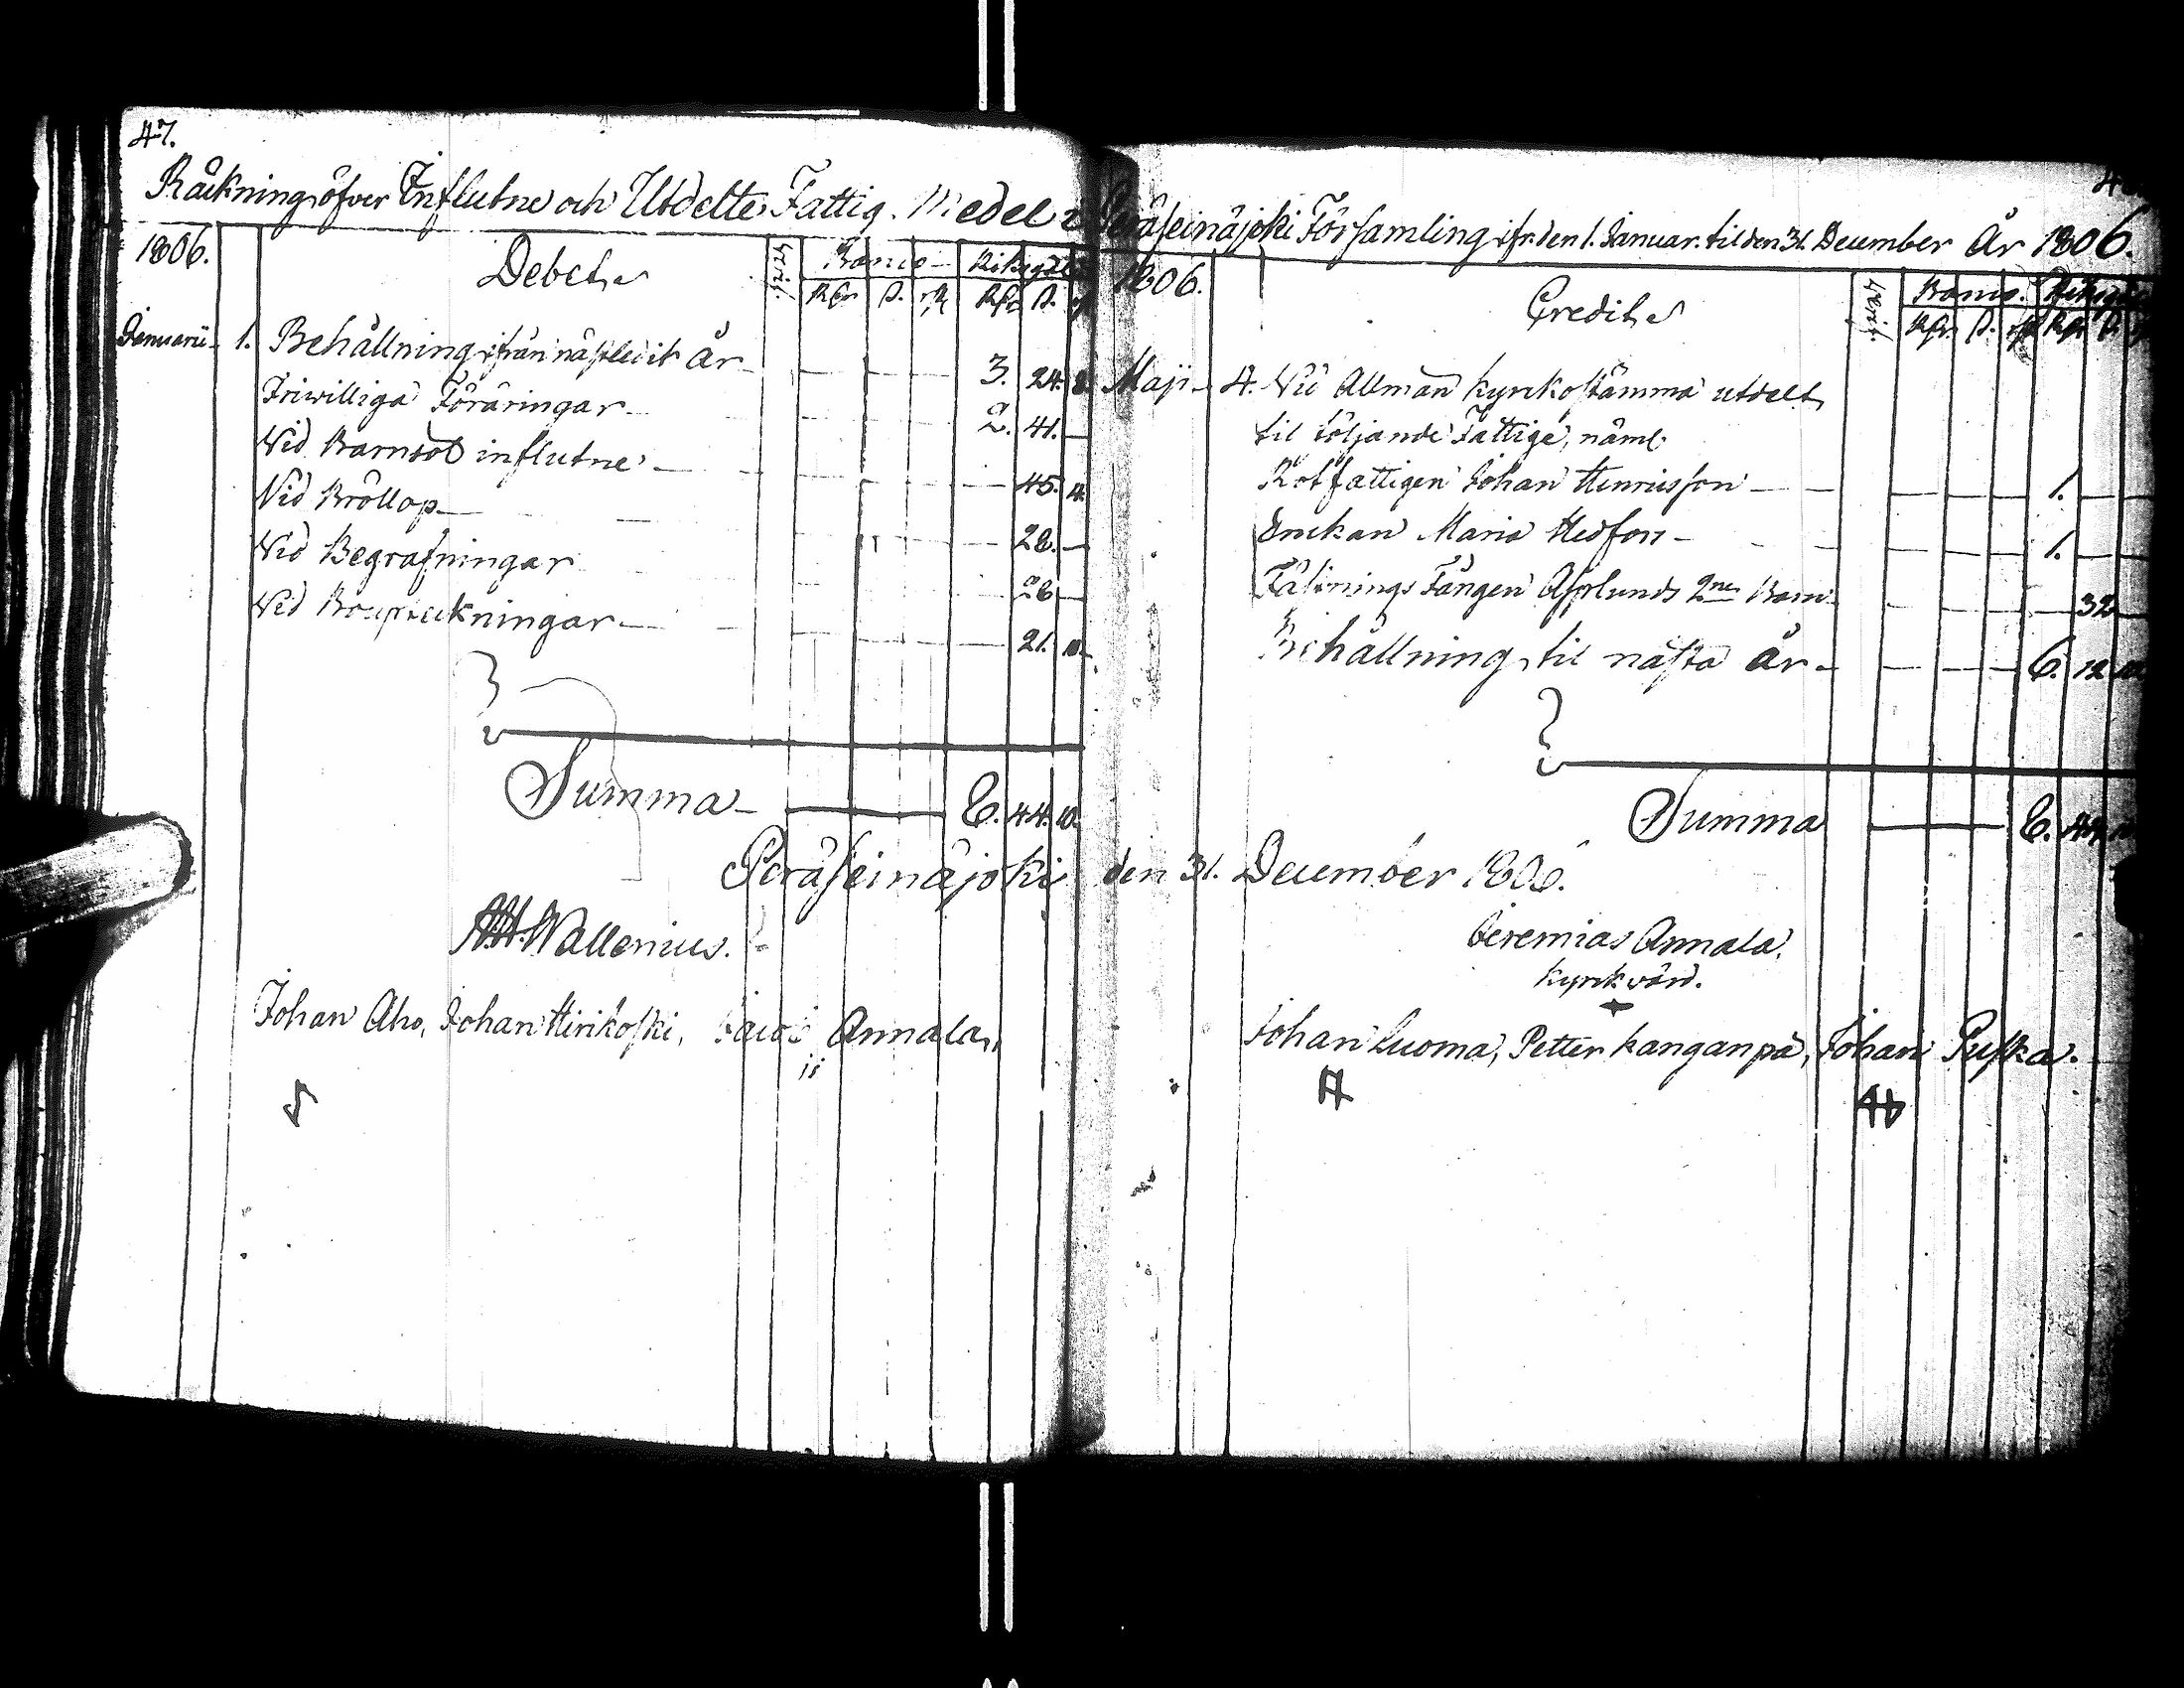 47.
Räkning öfver Influtne och Utdelte Fattig-Medel i Peräseinäjoki Församling ifr. den 1. Januar. til den 31. December År 1806.
1806. Debet. Verif. Banco Riksgäld
Rdr ß. rst Rdr ß.
Januarii 1. Behållning ifrån nästledit år 3. 24. 8.
Friwilliga Föräringar 2. 41. —
Vid Barndol influtne 45. 4.
Vid Bröllop 28. —
Vid Begrafningar 28 —
Vid Bouptekningar 21. 10.
Summa 8. 44. 10.
1806. Credit. Verif. Banco. Riksgäld
Rdr. ß. rst Rdr ß.
Maji 4. Vid Allmän Kyrkostämma utdelt
til följande Fattige, näml.
Rotfattigen Johan Henricsson 1. —
Enckan Maria Hedfors 1. —
Fästnings Fången Asplunds 2ne Barn 32 —
Behållning til nästa år 6. 12
Summa 8. 44
Peräseinäjoki den 31. December 1806.
Wallenius.
Jeremias Annala.
Kyrkvärd.
Johan Aho, Johan Hirikoski, Jacob Annala,
Johan Luoma, Petter Kanganpä, Johan Puska.